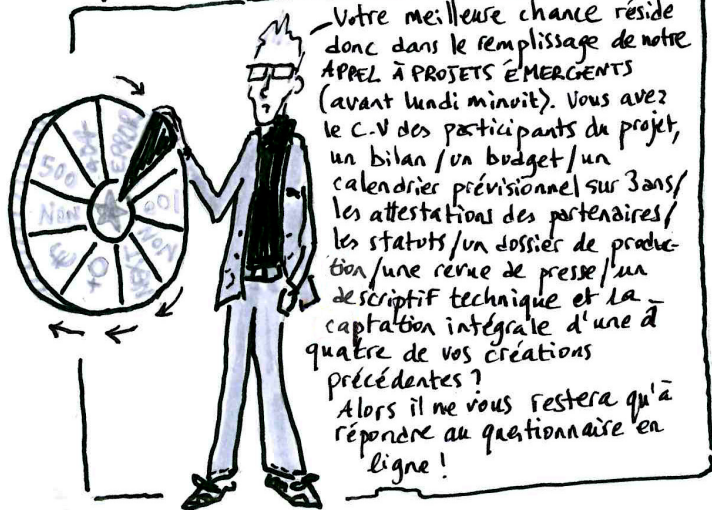 Votre meilleure chance réside
donc dans le remplissage de notre
APPEL À PROJETS ÉMERGENTS
(avant lundi minuit). Vous avez
le C-V des participants du projet,
un bilan / un budget / un
calendrier prévisionnel sur 3 ans /
les attestations des partenaires /
les statuts / un dossier de produc-
tion / une revue de presse / un
descriptif technique et la
captation intégrale d'une à
quatre de vos créations
précédentes ?
Alors il ne vous restera qu'à
répondre au questionnaire en
ligne !
ERROR
404
500
NON
100
NON
NEXT